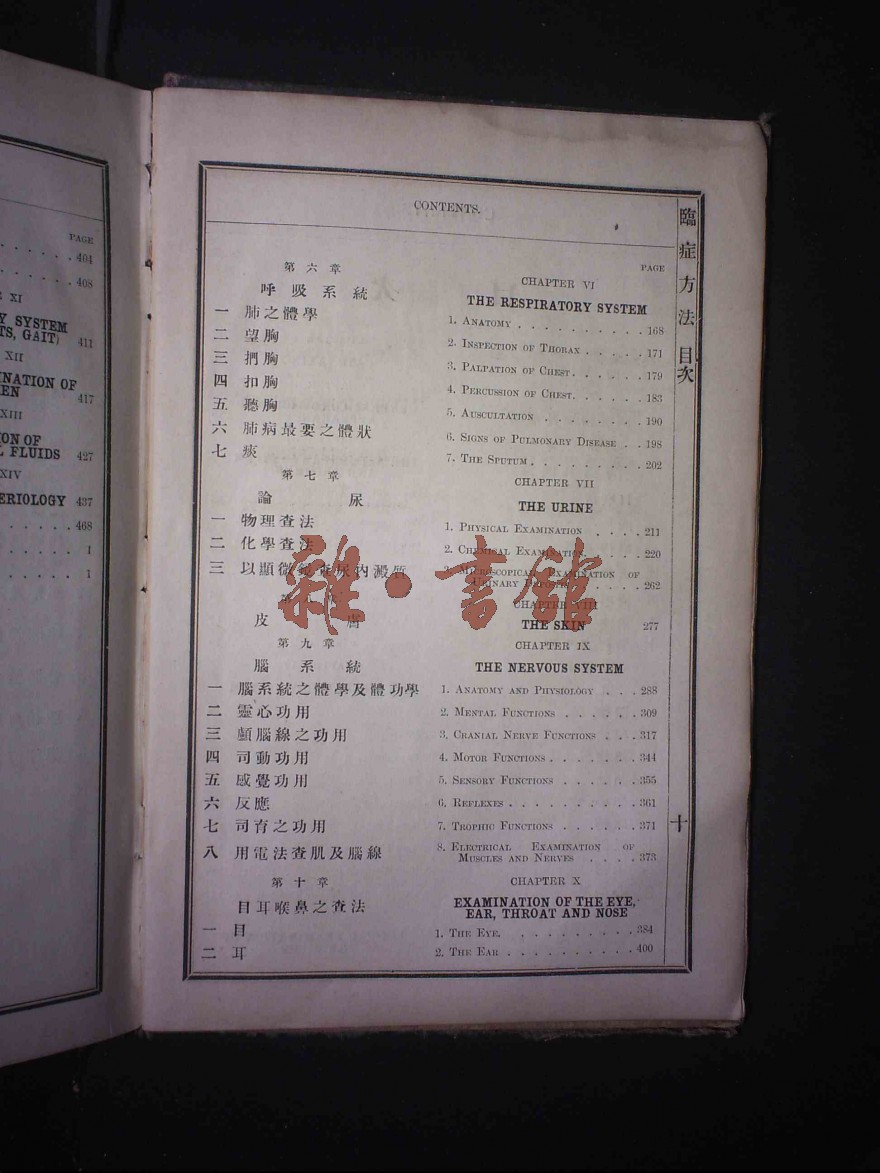 PAGE
404
408
XI
Y SYSTEM
TS, GAIT) 411
XII
INATION OF
EN 417
XIII
ON OF
L FLUIDS 427
XIV
ERIOLOGY 437
468
1
1
CONTENTS.
臨症方法 目次
十
第六章
呼吸系統
一 肺之體學
二 望胸
三 捫胸
四 扣胸
五 聽胸
六 肺病最要之體狀
七 痰
第七章
論尿
一 物理查法
二 化學查法
三 以顯微鏡查尿內澱質
皮膚
第九章
腦系統
一 腦系統之體學及體功學
二 靈心功用
三 顱腦線之功用
四 司動功用
五 感覺功用
六 反應
七 司育之功用
八 用電法查肌及腦線
第十章
目耳喉鼻之查法
一 目
二 耳
PAGE
CHAPTER VI
THE RESPIRATORY SYSTEM
1. ANATOMY . . . . . . . . . . 168
2. INSPECTION OF THORAX . . . . . 171
3. PALPATION OF CHEST. . . . . . 179
4. PERCUSSION OF CHEST. . . . . . 183
5. AUSCULTATION . . . . . . . . 190
6. SIGNS OF PULMONARY DISEASE . . 198
7. THE SPUTUM . . . . . . . . . 202
CHAPTER VII
THE URINE
1. PHYSICAL EXAMINATION . . . . 211
2. CHEMICAL EXAMINATION. . . . . 220
3. MICROSCOPICAL EXAMINATION OF
URINARY DEPOSITS . . . . . . 262
CHAPTER VIII
THE SKIN 277
CHAPTER IX
THE NERVOUS SYSTEM
1. ANATOMY AND PHYSIOLOGY . . . 288
2. MENTAL FUNCTIONS . . . . . . 309
3. CRANIAL NERVE FUNCTIONS . . . 317
4. MOTOR FUNCTIONS . . . . . . . 344
5. SENSORY FUNCTIONS . . . . . . 355
6. REFLEXES . . . . . . . . . . 361
7. TROPHIC FUNCTIONS . . . . . . 371
8. ELECTRICAL EXAMINATION OF
MUSCLES AND NERVES . . . . 373
CHAPTER X
EXAMINATION OF THE EYE,
EAR, THROAT AND NOSE
1. THE EYE. . . . . . . . . . . 384
2. THE EAR . . . . . . . . . . . 400
雜·書館